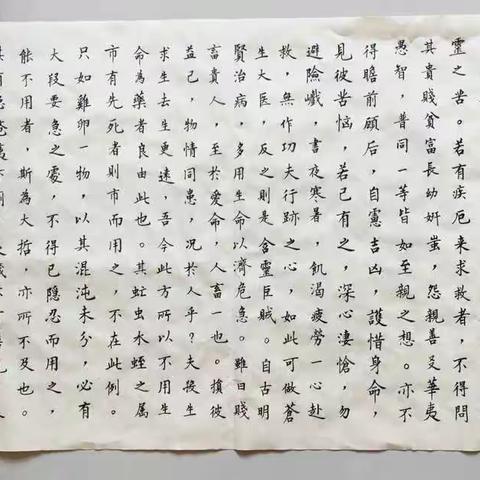 靈之苦。若有疾厄来求救者,不得問
其貴賤貧富長幼妍蚩,怨親善友華夷
愚智,普同一等皆如至親之想。亦不
得瞻前顧后,自慮吉凶,護惜身命,
見彼苦惱,若己有之,深心淒愴,勿
避險巇,晝夜寒暑,飢渴疲勞一心赴
救,無作功夫行跡之心,如此可做蒼
生大医,反之則是含靈巨賊。自古明
賢治病,多用生命以濟危急。雖曰賤
畜貴人,至於愛命,人畜一也。損彼
益己,物情同患,况於人乎?夫換生
求生去生更遠,吾今此方所以不用生
命為藥者良由此也。其虻虫水蛭之属
市有先死者則市而用之,不在此例。
只如雞卵一物,以其混沌未分,必有
大段要急之處,不得已隱忍而用之,
能不用者,斯為大哲,亦所不及也。